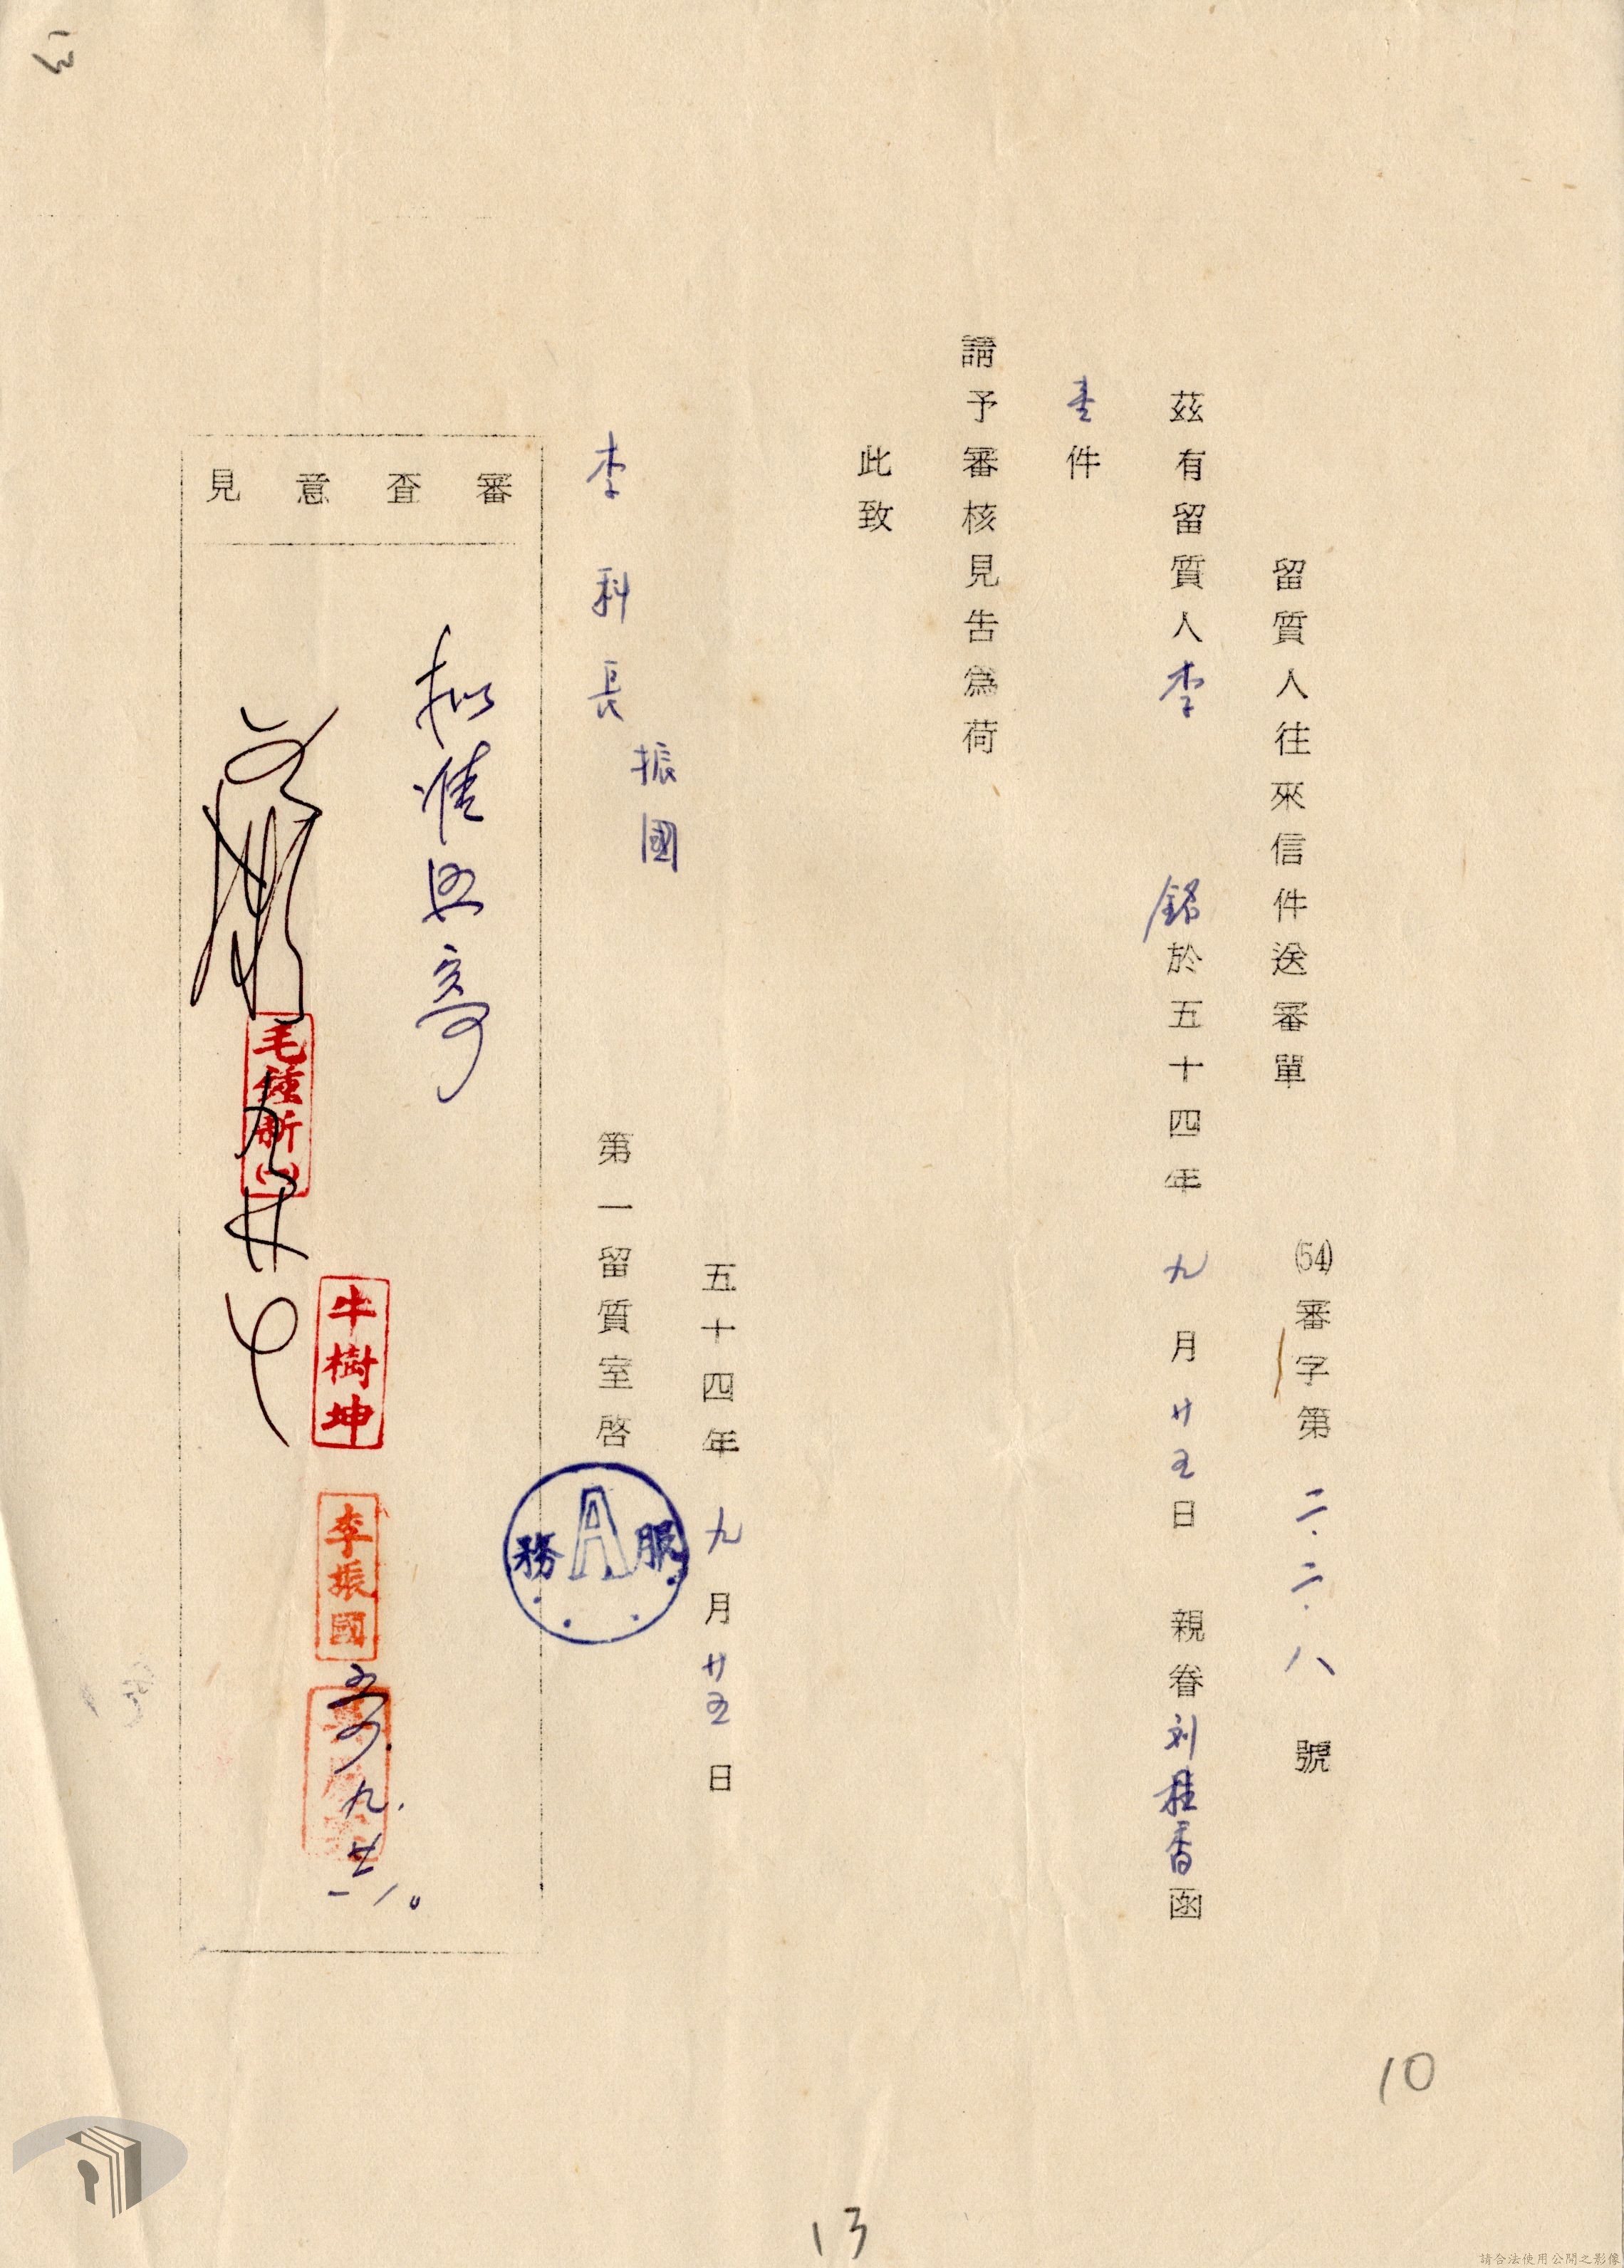 留質人往來信件送審單
(54)審字第二.二.八號
茲有留質人李 銘於五十四年九月廿五日 親眷刘桂香函
壹件
請予審核見告為荷
此致
李科長振國
五十四年九月廿五日
第一留質室啓
服A務
審查意見
擬准照寄
毛鍾新(一)
牛樹坤
李振國
五四.九.廿六.
10
13
13
請合法使用公開之影像